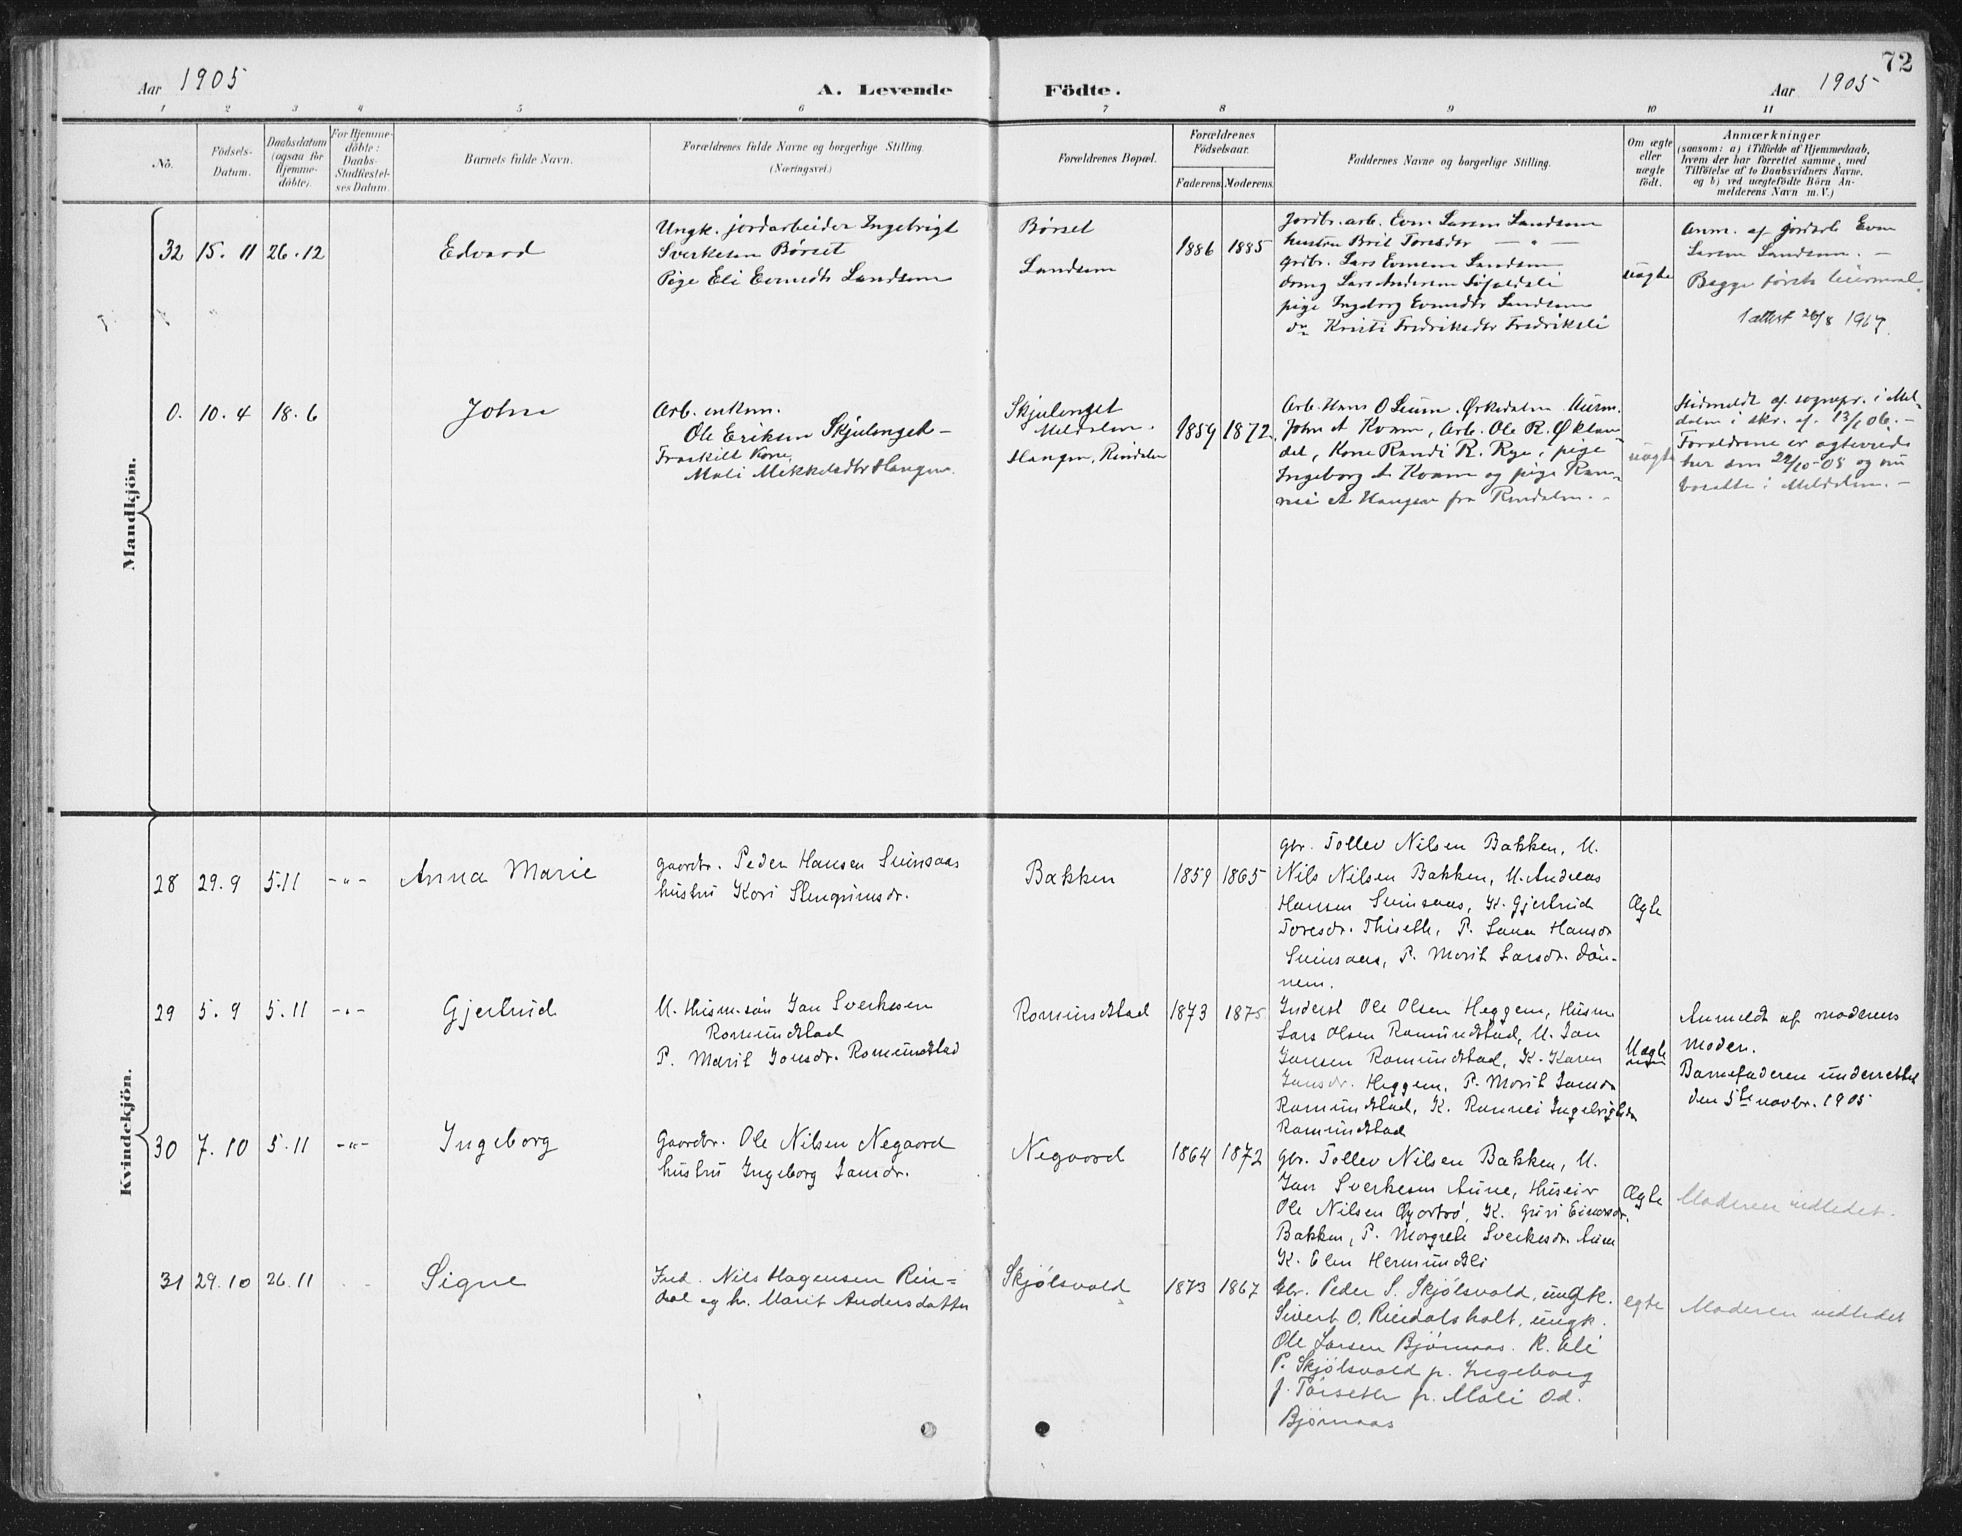 72
Aar 1905
A. Levende Födte.
Aar 1905
1 2 3 4 5 6 7 8 9 10 11
No.
Födsels-Datum.
Daabsdatum (ogsaa for Hjemmedöbte).
For Hjemmedöbte: Daabs-Stadfæstelses Datum.
Barnets fulde Navn.
Forældrenes fulde Navne og borgerlige Stilling. (Næringsvei.)
Forældrenes Bopæl.
Forældrenes Födselsaar.
Faderens. Moderens.
Faddernes Navne og borgerlige Stilling.
Om ægte eller uægte födt.
Anmærkninger
(saasom: a) i Tilfælde af Hjemmedaab,
hvem der har forrettet samme, med
Tilföielse af to Daabsvidners Navne,
og b) ved uægtefödte Börn An-
melderens Navn m. V.)
Mandkjön.
32 15. 11 26. 12
Edvard
Ungk. jordarbeider Ingebrigt
Sverkesen Børset
Pige Eli Evensdtr Landsem
Børset
Landsem
1886 1885
Jordbr. arb. Even Larsen Landsem
hustru Brit Toresdtr — " —
Grdbr. Lars Evensen Landsem
dreng Lars Andersen
pige Ingeborg Evensdtr Landsem
do Kristi Fredriksdtr Fredriksli
uægte
Anm. af jordarb Even
Larsen Landsem. —
Begge første leiermaal.
1 attest 26/8 1967.
0. 10. 4 18. 6
John
Arb. enkem.
Ole Eriksen Skjulenget —
Fraskilt Kone,
Mali Mikkelsdtr Haugen.
Skjulenget
Meldalen.
Haugen, Rindalen
1859 1872
Arb. Hans O Leum. Ørkedalen.
John A Kvam, Arb. Ole R. Øklan-
del, Kone Randi R. Rye, pige
Ingeborg A Kvam og pige Ran-
nei A Haugen fra Rindalen. -
uægte
Hidmeldt af sognepr. i Mel-
dalen i skr. af 13/1 06. —
Forældrene er ægteviede
her den 22/10-05 og nu
bosatte i Meldalen. —
Kvindekjön.
28 29. 9 5. 11 - " -
Anna Marie
Gaardbr. Peder Hansen Svinsaas
hustru Kari Stengrimsdr.
Bakken
1859 1865
Gbr. Tollev Nilsen Bakken, U.
Nils Nilsen Bakken, U. Andreas
Hansen Svinsaas, K. Gjertrud
Toresdr. Thiseth, P. Lana Hansdr
Svinsaas, P. Marit Larsdr. Løn-
nem.
Ægte
29 5. 9 5. 11 - " -
Gjertrud
U. Husm. søn Jan Sverkesen
Romundstad
P. Marit Jonsdr. Romundstad
Romundstad
1873 1875
Inderst Ole Olsen Heggem, Husm
Lars Olsen Romundstad, U. Jan
Jansen Romundstad, K. Karen
Jansdr. Heggem, P. Marit Jansdr
Romundstad, K. Rannei Ingebrigtsdr
Romundstad
Uægte
Anmeldt af moderens
moder.
Barnefaderen underrettet
den 5te novbr. 1905
30 7. 10 5. 11 - " -
Ingeborg
Gaardbr. Ole Nilsen Negaard
hustru Ingeborg Jansdr.
Negaard
1864 1872
Gbr. Tollev Nilsen Bakken, U.
Jan Sverkesen Aune, Huseier
Ole Nilsen K. Guri Einarsdr.
Bakken, P. Margrete Sverkesdr. Aune
K. Elen Hermundsli
Ægte
Moderen indledet.
31 29. 10 26. 11
Signe
Ind. Nils Hagensen Rin-
dal og h. Marit Andersdatter
Skjølsvold
1873 1867
Gbr. Peder S. Skjølsvold, ungk.
Sivert O. Rindalsholt, ungk.
Ole Larsen Bjørnaas. K. Eli
P. Skjølsvold p. Ingeborg
J. Tørseth p. Mali Od.
Bjørnaas
egte
Moderen indledet